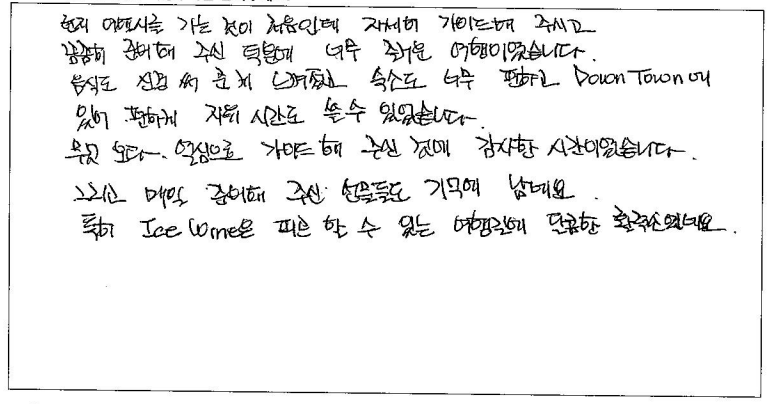 현지 여행사를 가는 것이 처음인데 자세히 가이드해 주시고
꼼꼼히 준비해 주신 덕분에 너무 즐거운 여행이었습니다.
음식도 신경 써 준게 느껴졌고 숙소도 너무 편하고 DownTown에
있어 편하게 자유 시간도 쓸 수 있었습니다.
무엇 보다 열심으로 가이드 해 주신 것에 감사한 시간이었습니다.
그리고 매일 준비해 주신 선물들도 기억에 남네요.
특히 Ice Wine은 피곤 할 수 있는 여행길에 달콤한 활력소였네요.